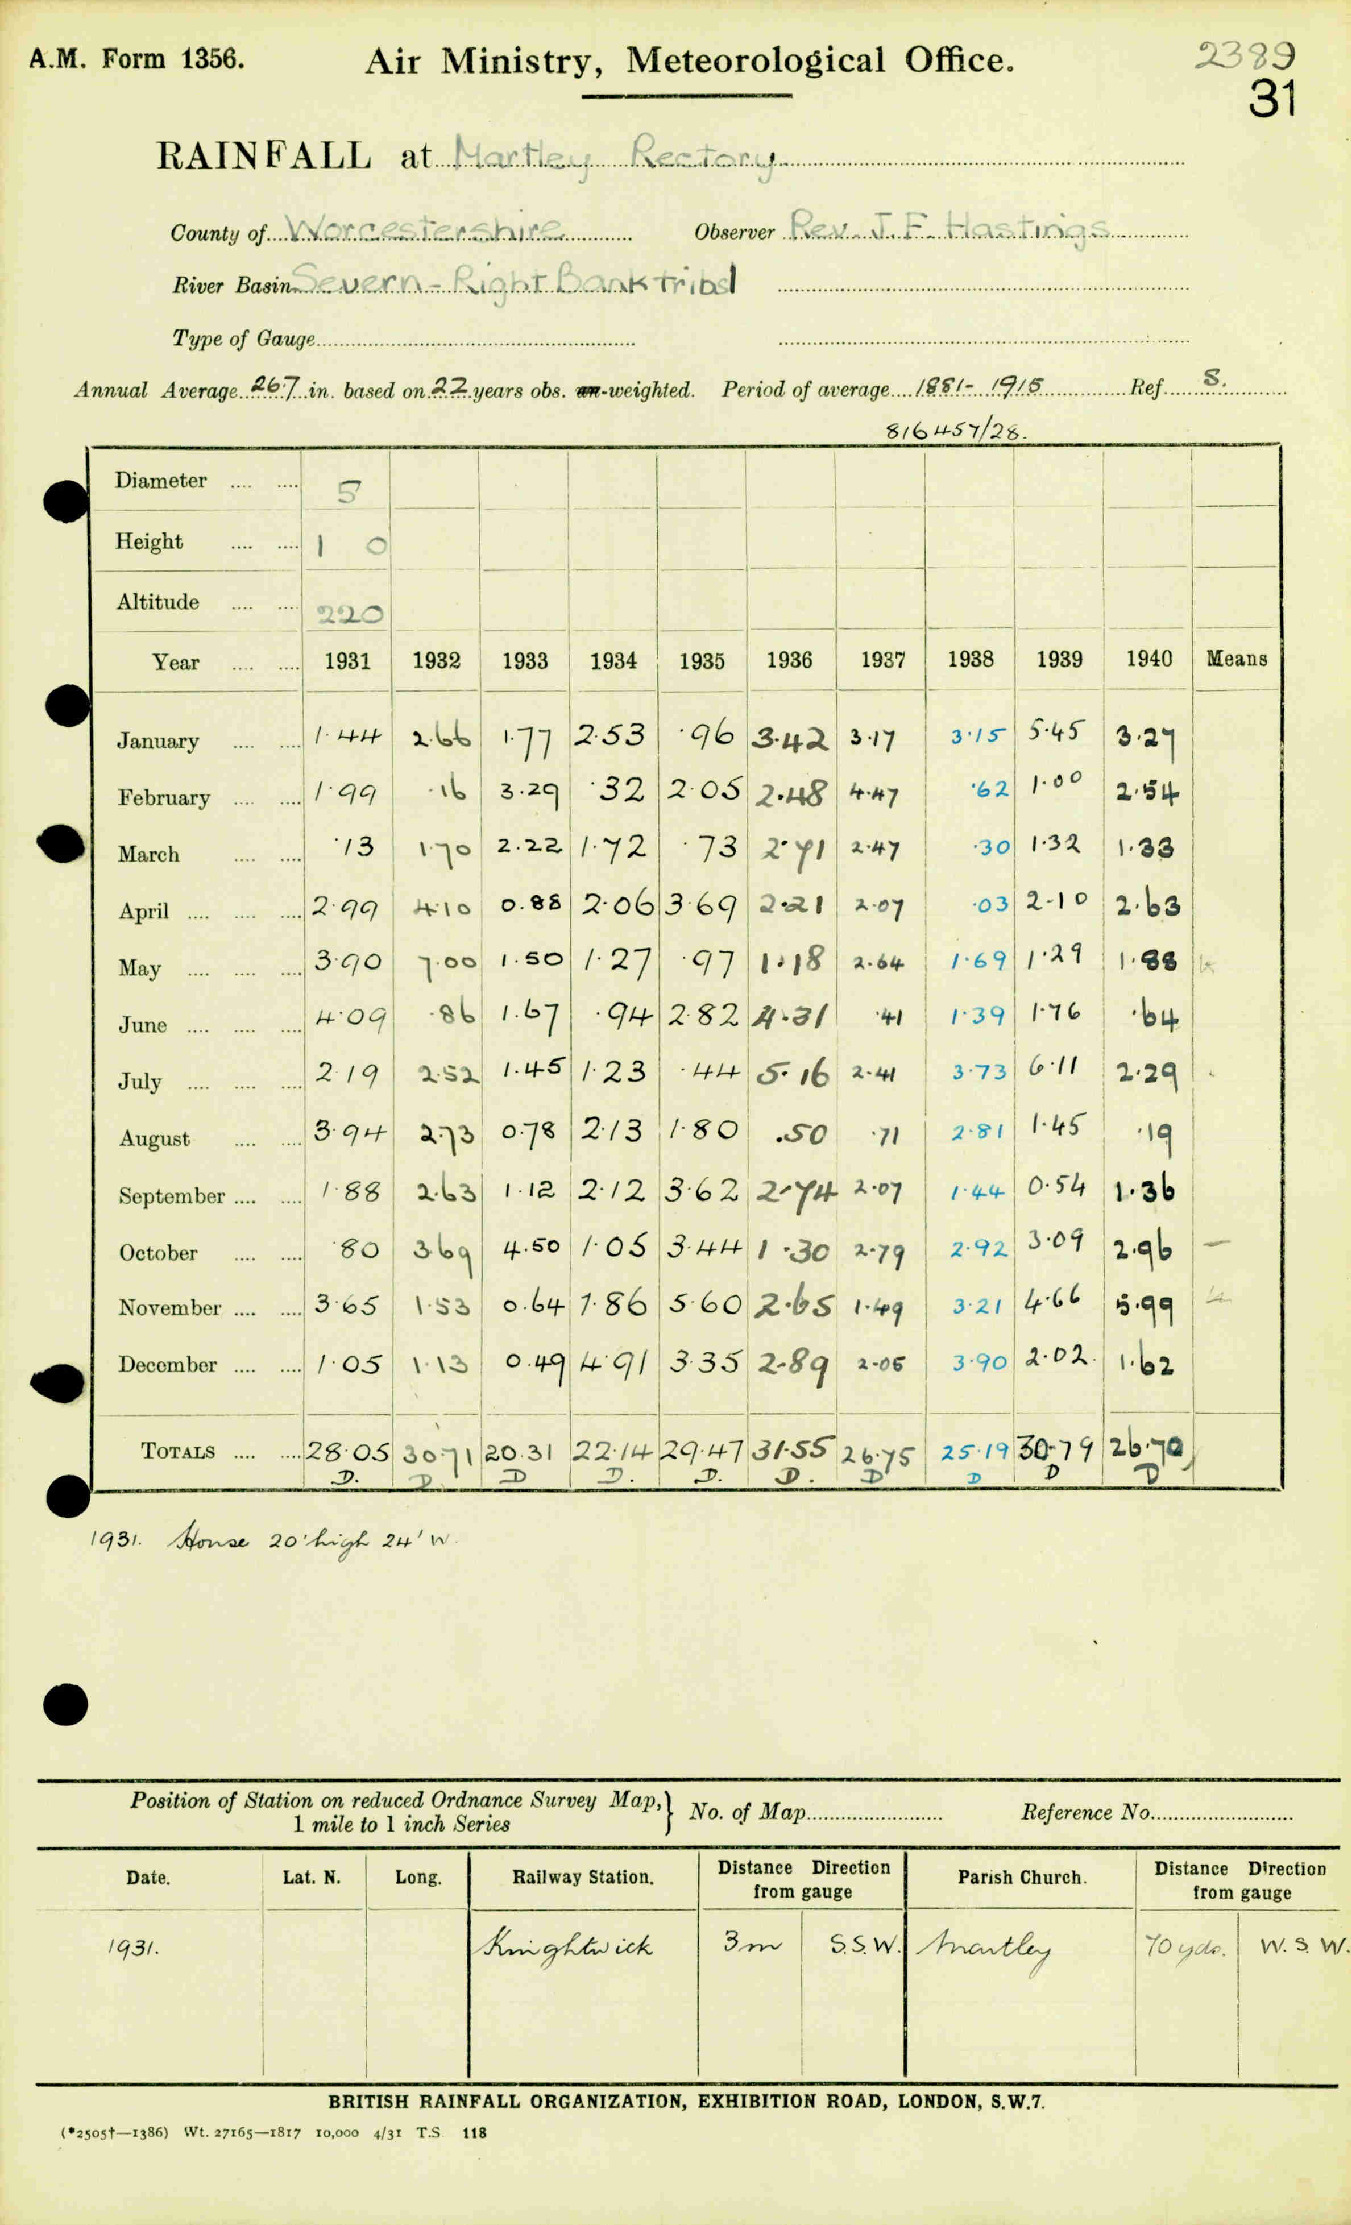 A.M. Form 1356. Air Ministry, Meteorological Office. 2389
31
RAINFALL at Martley Rectory
County of Worcestershire Observer Rev. J. F. Hastings
River Basin Severn - Right Bank Tribs
Type of Gauge
Annual Average 26.7 in. based on 22 years obs. un-weighted. Period of average 1881 - 1915 Ref. S.
816457/28.
Diameter 5
Height 1 0
Altitude 220
Year 1931 1932 1933 1934 1935 1936 1937 1938 1939 1940 Means
January 1.44 2.66 1.77 2.53 .96 3.42 3.17 3.15 5.45 3.27
February 1.99 .16 3.29 .32 2.05 2.48 4.47 .62 1.00 2.54
March .13 1.70 2.22 1.72 .73 2.71 2.47 .30 1.32 1.33
April 2.99 4.10 0.88 2.06 3.69 2.21 2.07 .03 2.10 2.63
May 3.90 7.00 1.50 1.27 .97 1.18 2.64 1.69 1.29 1.88
June 4.09 .86 1.67 .94 2.82 4.31 .41 1.39 1.76 .64
July 2.19 2.52 1.45 1.23 .44 5.16 2.41 3.73 6.11 2.29
August 3.94 2.73 0.78 2.13 1.80 .50 .71 2.81 1.45 .19
September 1.88 2.63 1.12 2.12 3.62 2.74 2.07 1.44 0.54 1.36
October .80 3.69 4.50 1.05 3.44 1.30 2.79 2.92 3.09 2.96 —
November 3.65 1.53 0.64 1.86 5.60 2.65 1.49 3.21 4.66 5.99
December 1.05 1.13 0.49 4.91 3.35 2.89 2.05 3.90 2.02 1.62
TOTALS 28.05 30.71 20.31 22.14 29.47 31.55 26.75 25.19 30.79 26.70
D. D D D. D. D. D D D D
1931. House 20' high 24' W.
Position of Station on reduced Ordnance Survey Map, } No. of Map Reference No.
1 mile to 1 inch Series
Date. Lat. N. Long. Railway Station. Distance Direction from gauge Parish Church. Distance Direction from gauge
1931. Knightwick 3m S.S.W. Martley 70 yds. W.S.W.
BRITISH RAINFALL ORGANIZATION, EXHIBITION ROAD, LONDON, S.W.7.
(*2505†—1386) Wt. 27165—1817 10,000 4/31 T.S. 118